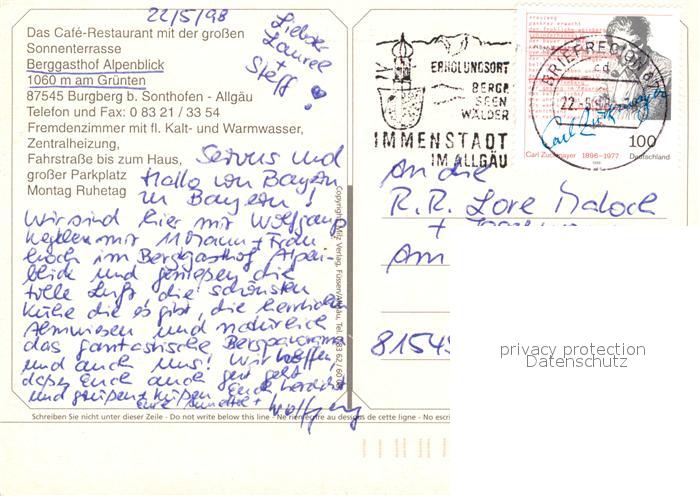 22/5/98
Liebe
Laurel
+
Steff!
Das Café-Restaurant mit der großen
Sonnenterrasse
Berggasthof Alpenblick
1060 m am Grünten
87545 Burgberg b. Sonthofen - Allgäu
Telefon und Fax: 0 83 21 / 33 54
Fremdenzimmer mit fl. Kalt- und Warmwasser,
Zentralheizung,
Fahrstraße bis zum Haus,
großer Parkplatz
Montag Ruhetag
Servus und
Hallo von Bayern
zu Bayern!
Wir sind hier mit Wolfgangs
Mann + Frau
hoch im Berggasthof Alpen-
blick und genießen die
tolle Luft, die schönsten
Kühe die es gibt, die herrlichen
Almwiesen und natürlich
das fantastische Bergpanorama
und auch uns! Wir hoffen,
dass Euch auch gut geht
und grüßen + küssen Euch herzlichst
Eure +
Wolfgang
Schreiben Sie nicht unter dieser Zeile - Do not write below this line - Ne rien écrire au dessous de cette ligne - No escri
Copyright Milz Verlag, Füssen/Allgäu, Tel. 083 62/60
ERHOLUNGSORT
BERGE
SEEN
WÄLDER
IMMENSTADT
IM ALLGÄU
BRIEFREGION
22.-5.98
Carl Zuckmayer
100
Carl Zuckmayer 1896-1977
Deutschland
An die
R.R. Lore Maloch
+
Am
81545
privacy protection
Datenschutz